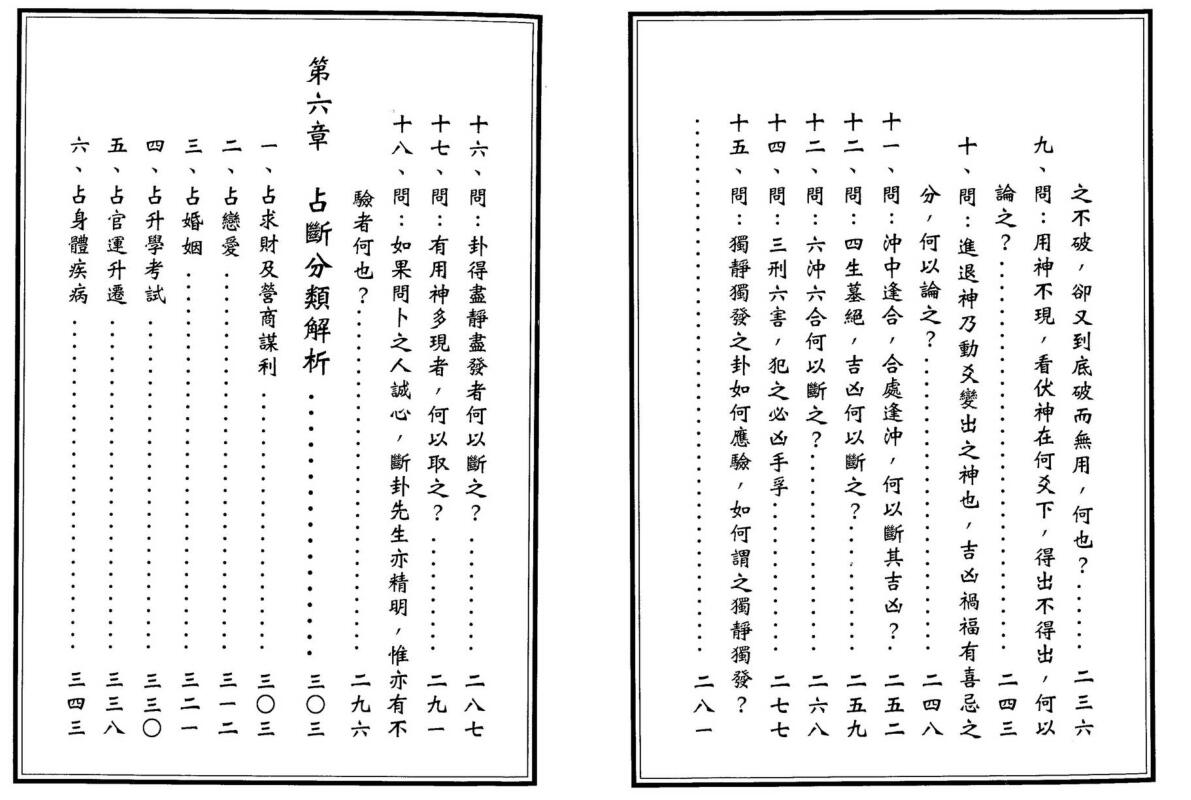 之不破,卻又到底破而無用,何也?……二三六
九、問:用神不現,看伏神在何爻下,得出不得出,何以
論之?……………………………………二四三
十、問:進退神乃動爻變出之神也,吉凶禍福有喜忌之
分,何以論之?…………………………二四八
十一、問:沖中逢合,合處逢沖,何以斷其吉凶?…二五二
十二、問:四生墓絕,吉凶何以斷之?…………二五九
十二、問:六沖六合何以斷之?………………二六八
十四、問:三刑六害,犯之必凶手孚……………二七七
十五、問:獨靜獨發之卦如何應驗,如何謂之獨靜獨發?
……………………………………………二八一
十六、問:卦得盡靜盡發者何以斷之?…………二八七
十七、問:有用神多現者,何以取之?…………二九一
十八、問:如果問卜之人誠心,斷卦先生亦精明,惟亦有不
驗者何也?………………………………二九六
第六章 占斷分類解析……………………三〇三
一、占求財及營商謀利……………………三〇三
二、占戀愛…………………………………三一二
三、占婚姻…………………………………三二一
四、占升學考試……………………………三三〇
五、占官運升遷……………………………三三八
六、占身體疾病……………………………三四三